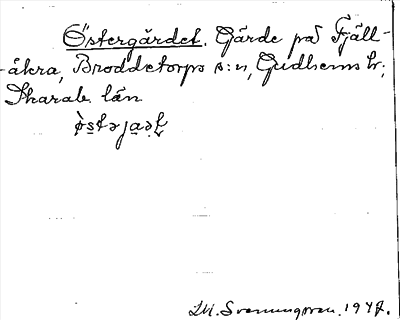 Östergärdet. Gärde på Fjäll-
-åkra, Broddetorps s:n, Gudhems hr;
Skarab. län
J. M. Svenungsson. 1947.